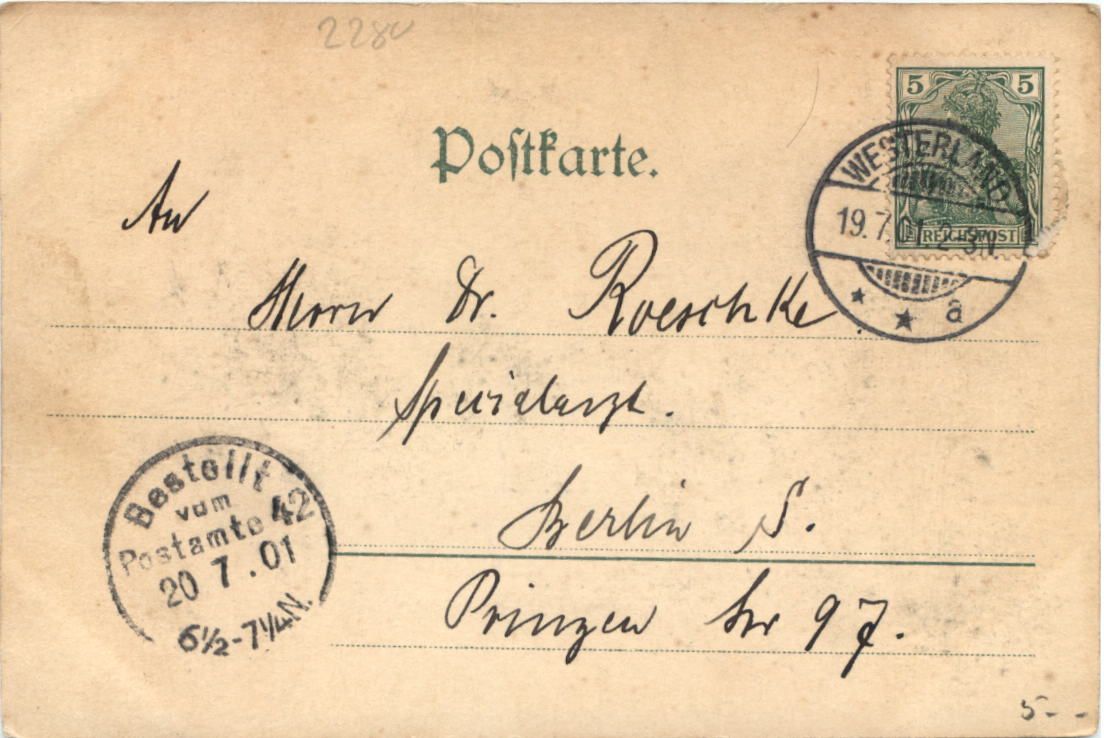 2280
5 5
Postkarte.
WESTERLAND
19.7.01. 2-3N.
REICHSPOST
a
An
Herrn Dr. Roeschke.
Specialarzt.
Berlin S.
Prinzen Str 97.
Bestellt
vom
Postamte 42
20 7.01
6½-7¼N.
5--